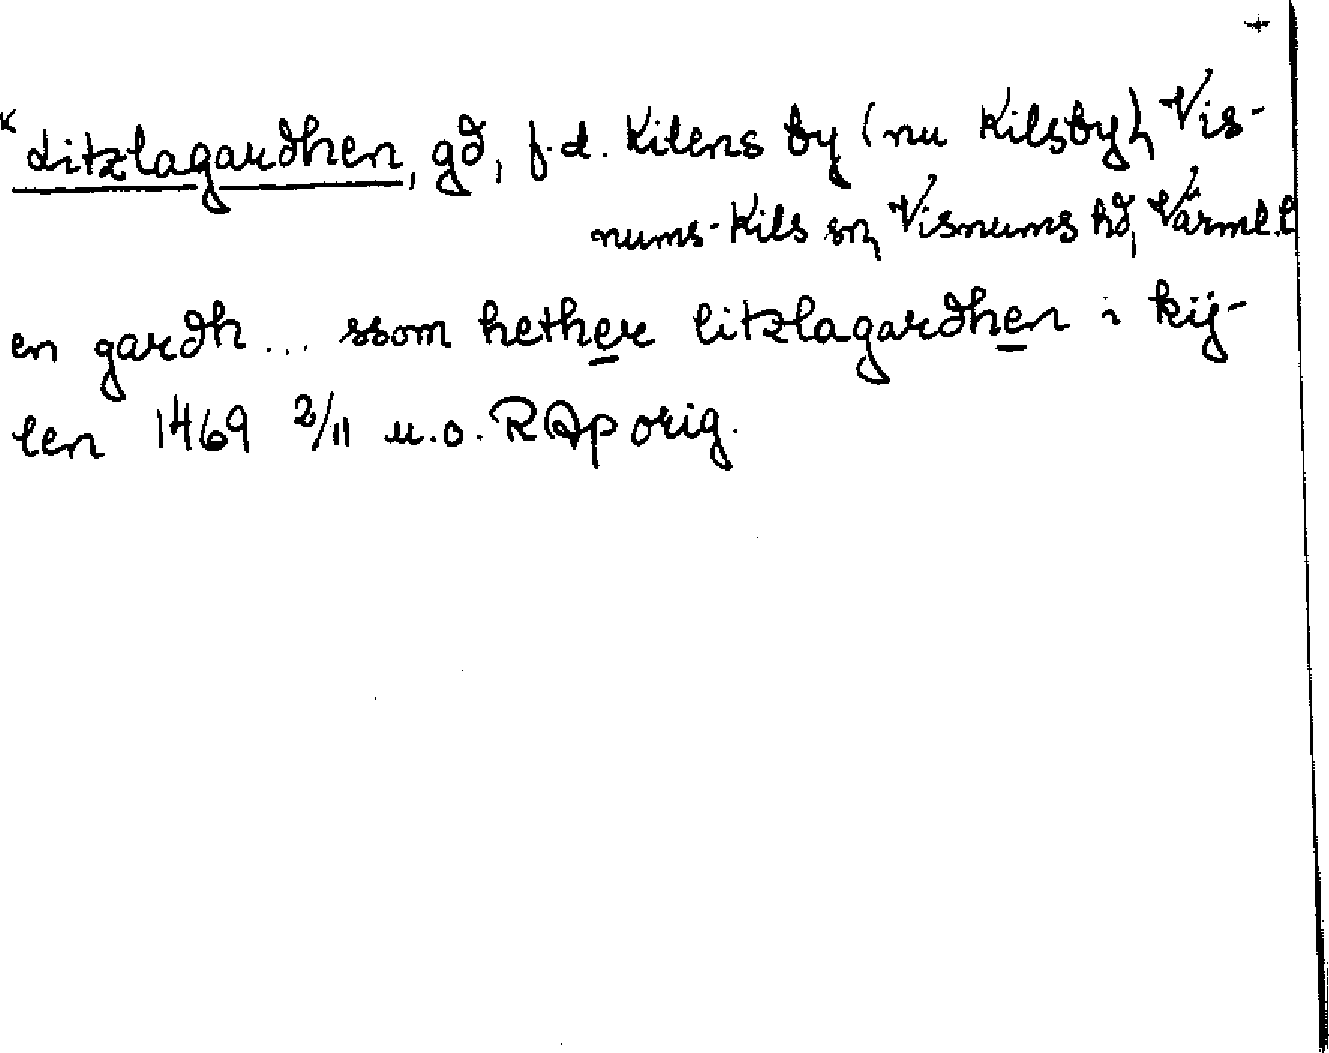 +
* Litzlagardhen, gd, f.d. Kilens by (nu Kilsby), Vis-
nums-Kils sn, Visnums hd, Värml. l
en gardh ... ssom hether litzlagardhen i kij-
len 1469 2/11 u.o. RAp orig.